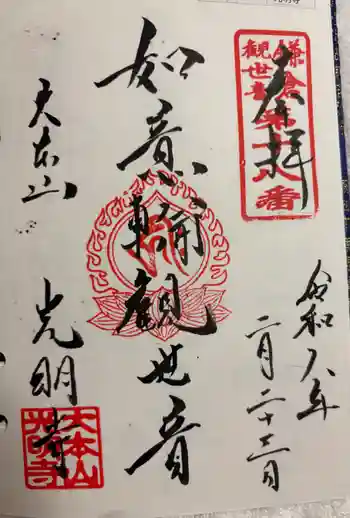 奉拝
鎌倉
観世音
第十八番
令和八年
二月二十二日
如意輪観世音
大本山
光明寺
大本山
光明寺